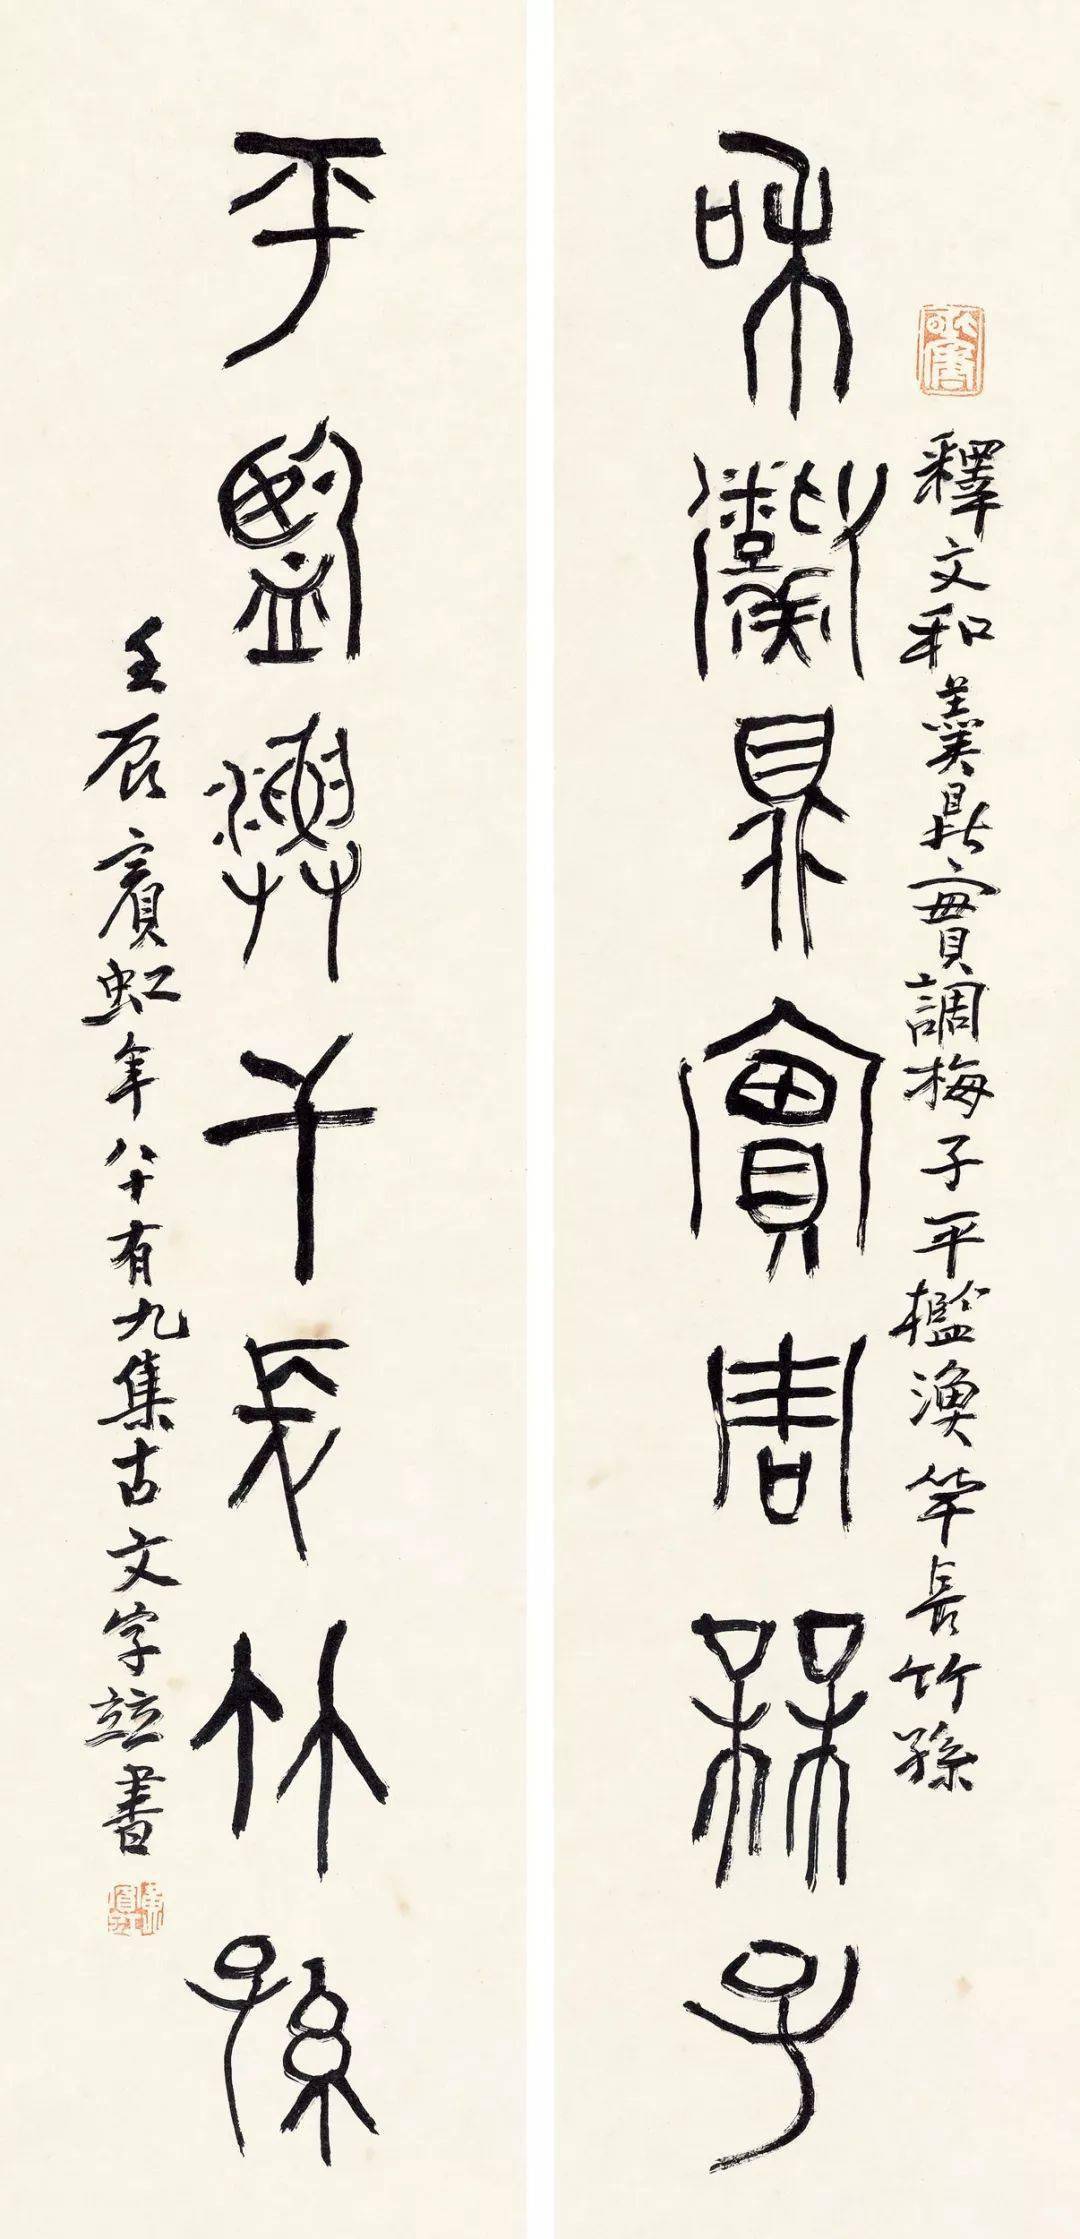 釋文和羹鼎實調梅子平檻漁竿長竹孫
和羹鼎實周楳子
平監漁干長竹孫
壬辰賓虹年八十有九集古文字竝書